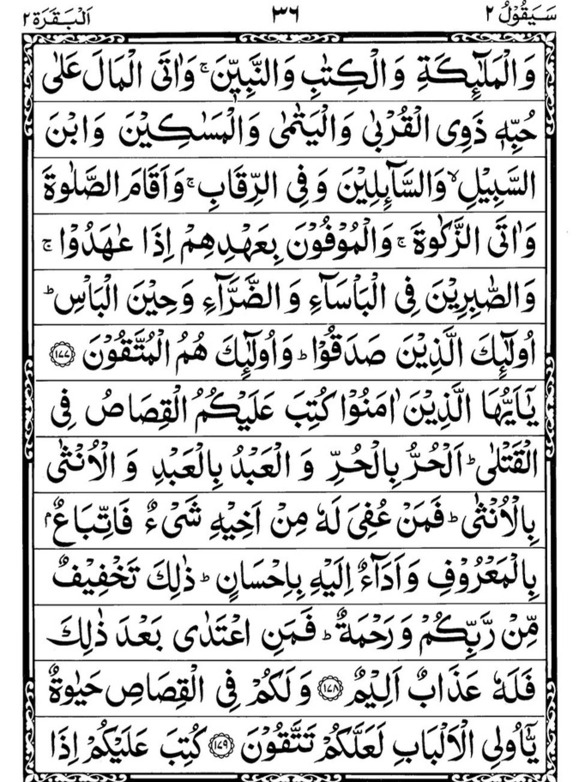 سَيَقُوۡلُ ٢ ٣٦ اَلۡبَقَرَة ٢
وَالۡمَلٰٓئِكَةِ وَالۡكِتٰبِ وَالنَّبِيّٖنَ ۚ وَاٰتَى الۡمَالَ عَلٰى
حُبِّهٖ ذَوِى الۡقُرۡبٰى وَالۡيَتٰمٰى وَالۡمَسٰكِيۡنَ وَابۡنَ
السَّبِيۡلِ ۙ وَالسَّآئِلِيۡنَ وَفِى الرِّقَابِ ۚ وَاَقَامَ الصَّلٰوةَ
وَاٰتَى الزَّكٰوةَ ۚ وَالۡمُوۡفُوۡنَ بِعَهۡدِهِمۡ اِذَا عٰهَدُوۡا ۚ
وَالصّٰبِرِيۡنَ فِى الۡبَاۡسَآءِ وَالضَّرَّآءِ وَحِيۡنَ الۡبَاۡسِ ؕ
اُولٰٓئِكَ الَّذِيۡنَ صَدَقُوۡا ؕ وَاُولٰٓئِكَ هُمُ الۡمُتَّقُوۡنَ ﴿١٧٧﴾
يٰٓاَيُّهَا الَّذِيۡنَ اٰمَنُوۡا كُتِبَ عَلَيۡكُمُ الۡقِصَاصُ فِى
الۡقَتۡلٰى ؕ اَلۡحُرُّ بِالۡحُرِّ وَالۡعَبۡدُ بِالۡعَبۡدِ وَالۡاُنۡثٰى
بِالۡاُنۡثٰى ؕ فَمَنۡ عُفِىَ لَهٗ مِنۡ اَخِيۡهِ شَىۡءٌ فَاتِّبَاعٌۢ
بِالۡمَعۡرُوۡفِ وَاَدَآءٌ اِلَيۡهِ بِاِحۡسَانٍ ؕ ذٰلِكَ تَخۡفِيۡفٌ
مِّنۡ رَّبِّكُمۡ وَرَحۡمَةٌ ؕ فَمَنِ اعۡتَدٰى بَعۡدَ ذٰلِكَ
فَلَهٗ عَذَابٌ اَلِيۡمٌ ﴿١٧٨﴾ وَلَكُمۡ فِى الۡقِصَاصِ حَيٰوةٌ
يّٰٓاُولِى الۡاَلۡبَابِ لَعَلَّكُمۡ تَتَّقُوۡنَ ﴿١٧٩﴾ كُتِبَ عَلَيۡكُمۡ اِذَا